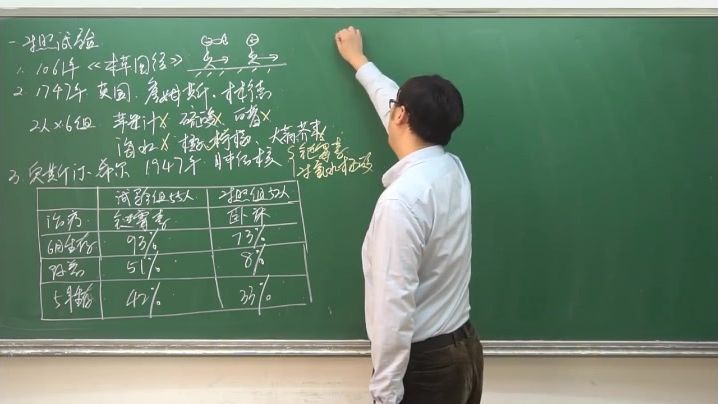 一 对照试验
1. 1061年《本草图经》
2. 1747年 英国. 詹姆斯. 林德
2人×6组 苹果汁× 硫酸× 白醋×
海水× 橘子柠檬、大蒜芥末×
3) 奥斯汀·希尔 1947年 肺结核 链霉素
对氨水杨酸
试验组55人 对照组52人
治疗 链霉素 卧床
6月生存 93% 73%
改善 51% 8%
5年生存 42% 33%